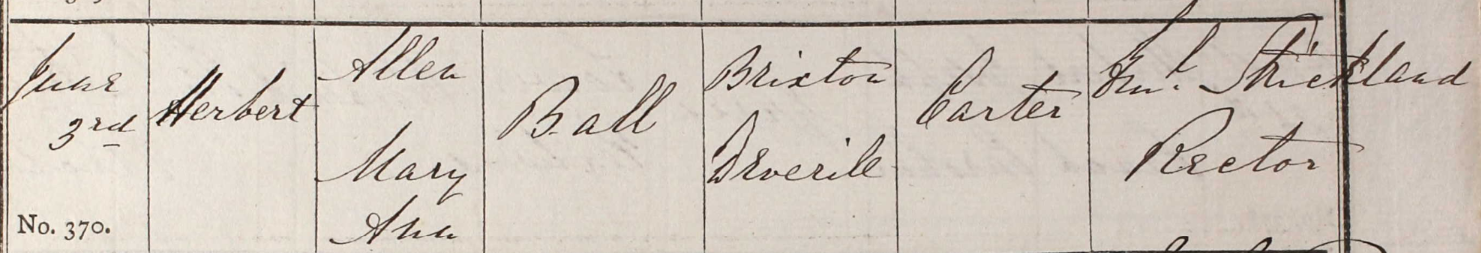 June
3rd
No. 370.
Herbert
Allen
Mary
Ann
Ball
Brixton
Deverile
Carter
Strickland
Rector